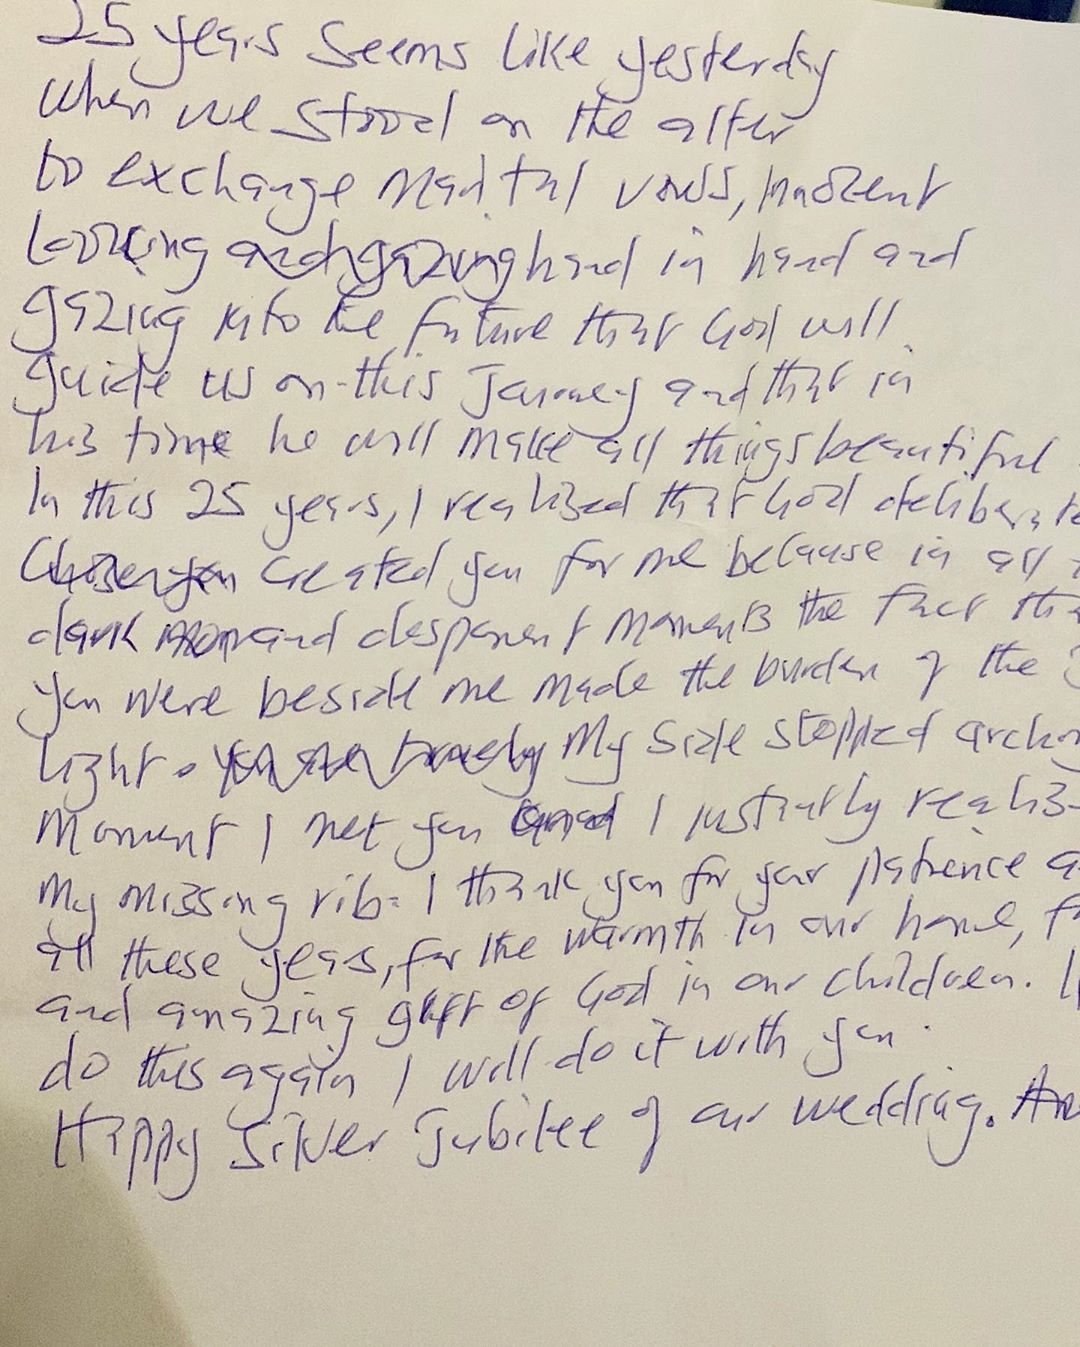 25 years seems like yesterday
when we stood on the alter
to exchange marital vows, innocent
looking hand in hand and
gazing into the future that God will
guide us on this Journey and that in
his time he will make all things beautiful
In this 25 years, I realized that God
created you for me because in all
dark and moments the fact
you were beside me made the burden of the
light. My side stopped
moment I met you and I instantly
my missing rib. I thank you for your patience
all these years, for the warmth in our home,
and amazing gift of God in our children.
do this again I will do it with you.
Happy Silver Jubilee of our wedding.